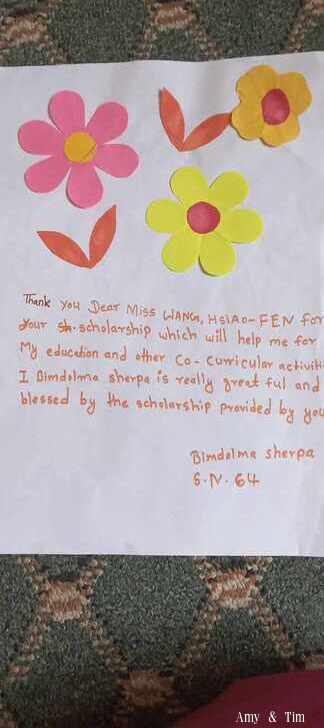 Thank you Dear Miss WANG, HSIAO-FEN for
your sh. scholarship which will help me for
My education and other Co-Curricular activiti
I Bimdolma sherpa is really great ful and
blessed by the scholarship provided by you
Bimdolma sherpa
S.N. 64
Amy & Tim